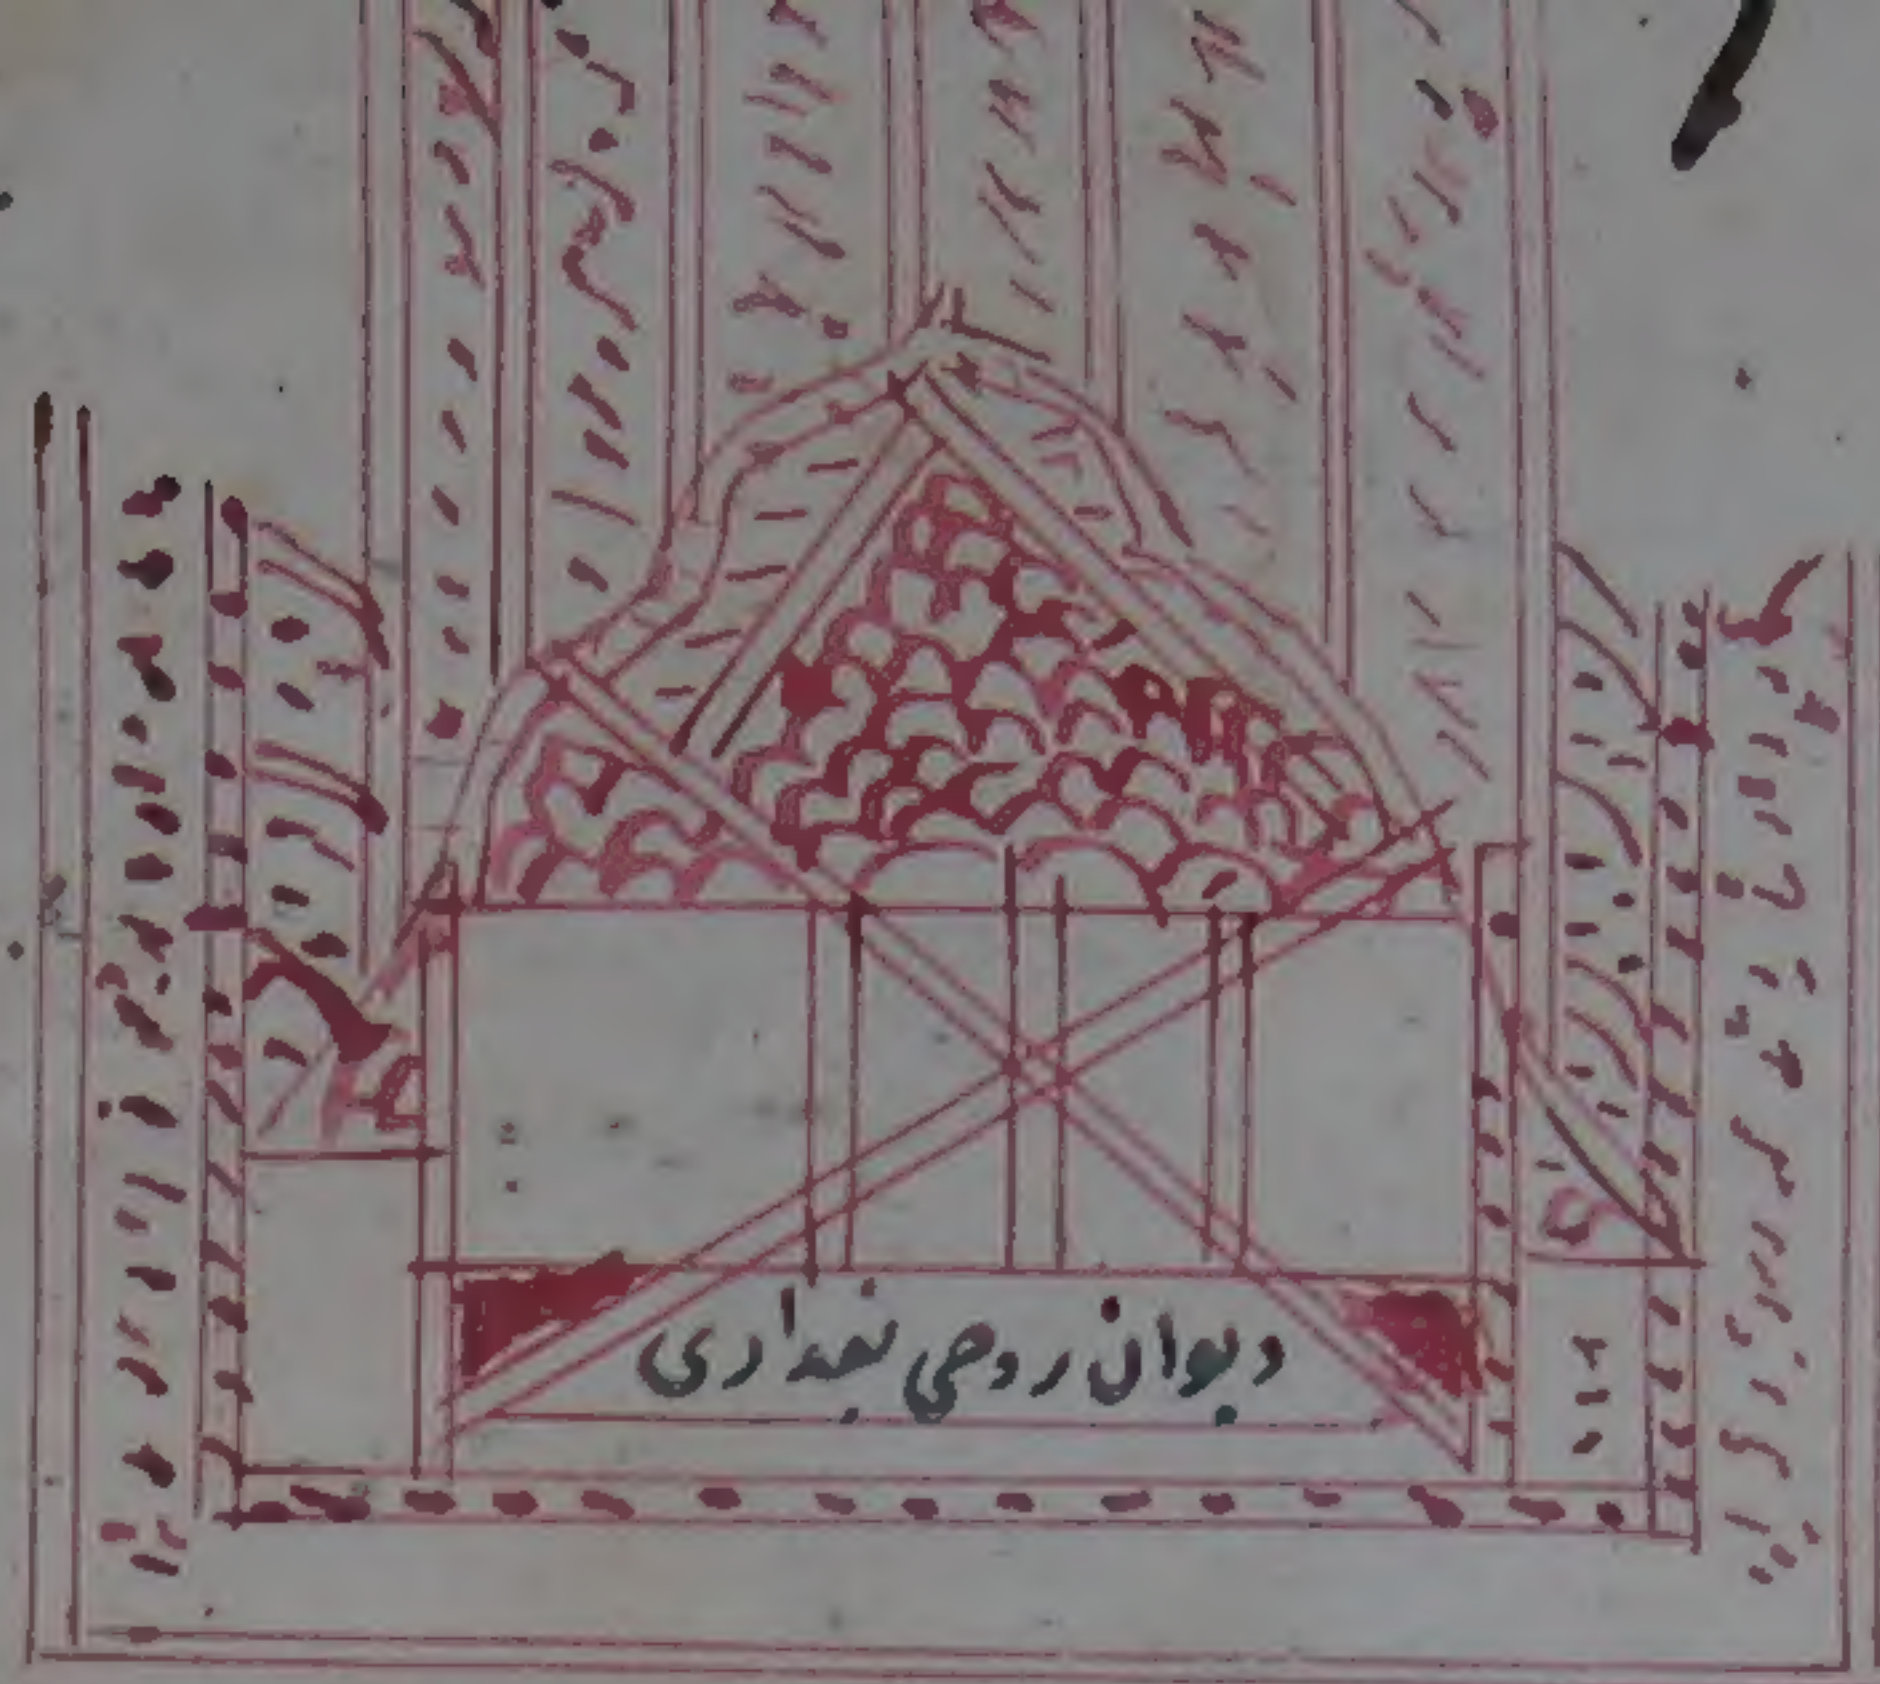 دیوان روحی بغدادی